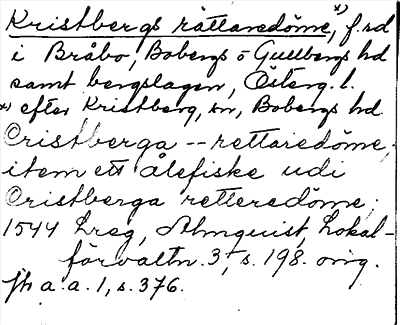 Kristbergs rättaredöme, *) f.rd
i Bråbo, Bobergs o Gullbergs hd
samt bergslagen, Österg.l.
*) efter Kristberg, sn, Bobergs hd
Cristberga -- rettaredöme;
item ett ålefiske udi
Cristberga retteredöme;
1544 Lreg, Almquist, Lokal-
förvaltn. 3, s. 198. orig.
Jfr a.a. 1, s. 376.